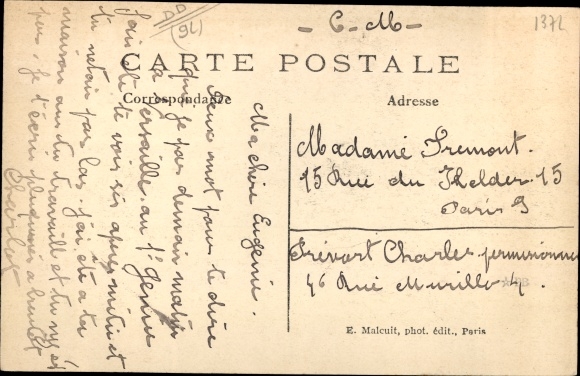 - C - M -
1372
(92)
CARTE POSTALE
Correspondance
Adresse
Ma chère Eugenie.
Deux mot pour te dire
que je pas demain matin
a Versaille au 1er Genie
J'ai ete te voir sis apres midi et
tu netais pas las. j'ai été a ta
maison ou tu travaill et tu ny est
pas. je t'ecri plus a bientot
Charlot
Madame Fremont.
15 Rue du Helder 15
Paris 9
Prévost Charles permissionnaire
46 Rue Murillo 4.
E. Malcuit, phot. édit., Paris